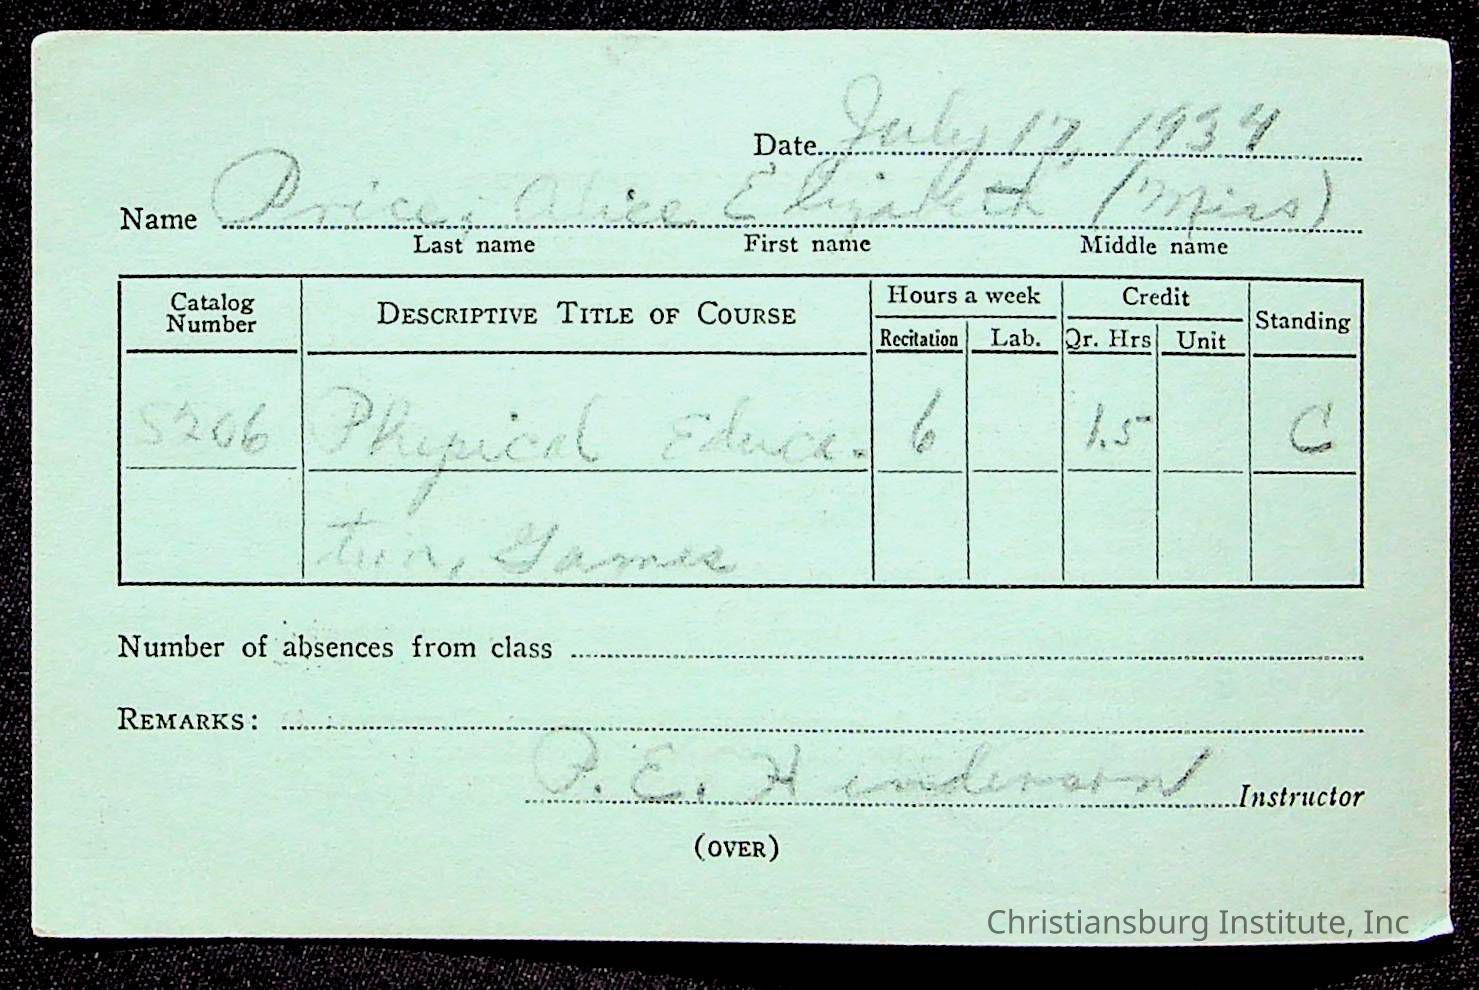 Date July 17, 1934
Name Price, Alice Elizabeth (Miss)
Last name First name Middle name
Catalog Number DESCRIPTIVE TITLE OF COURSE Hours a week Credit Standing
Recitation Lab. Qr. Hrs Unit
S206 Physical Educa- 6 1.5 C
tion, Games
Number of absences from class
REMARKS:
P. E. Henderson Instructor
(OVER)
Christiansburg Institute, Inc